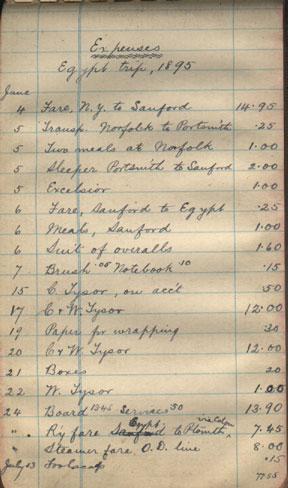 Expenses
Egypt trip, 1895
June
4 Fare, N.Y. to Sanford 14.95
5 Transp. Norfolk to Portsmith .25
5 Two meals at Norfolk 1.00
5 Sleeper Portsmith to Sanford 2.00
5 Excelsior 1.00
6 Fare, Sanford to Egypt .25
6 Meals, Sanford 1.00
6 Suit of overalls 1.60
7 Brush .05 Notebook 10 .15
15 C. Tysor, on acc't .50
17 C & W. Tysor 12.00
19 Paper for wrapping 30
20 C & W. Tysor 12.00
21 Boxes 20
22 W. Tysor 1.00
24 Board 1340 Services 50 13.90
" R'y fare Sanford Egypt to Ptsmth, 7.45
" Steamer fare O.D. line 8.00
July 13 Foolscap .15
77.55